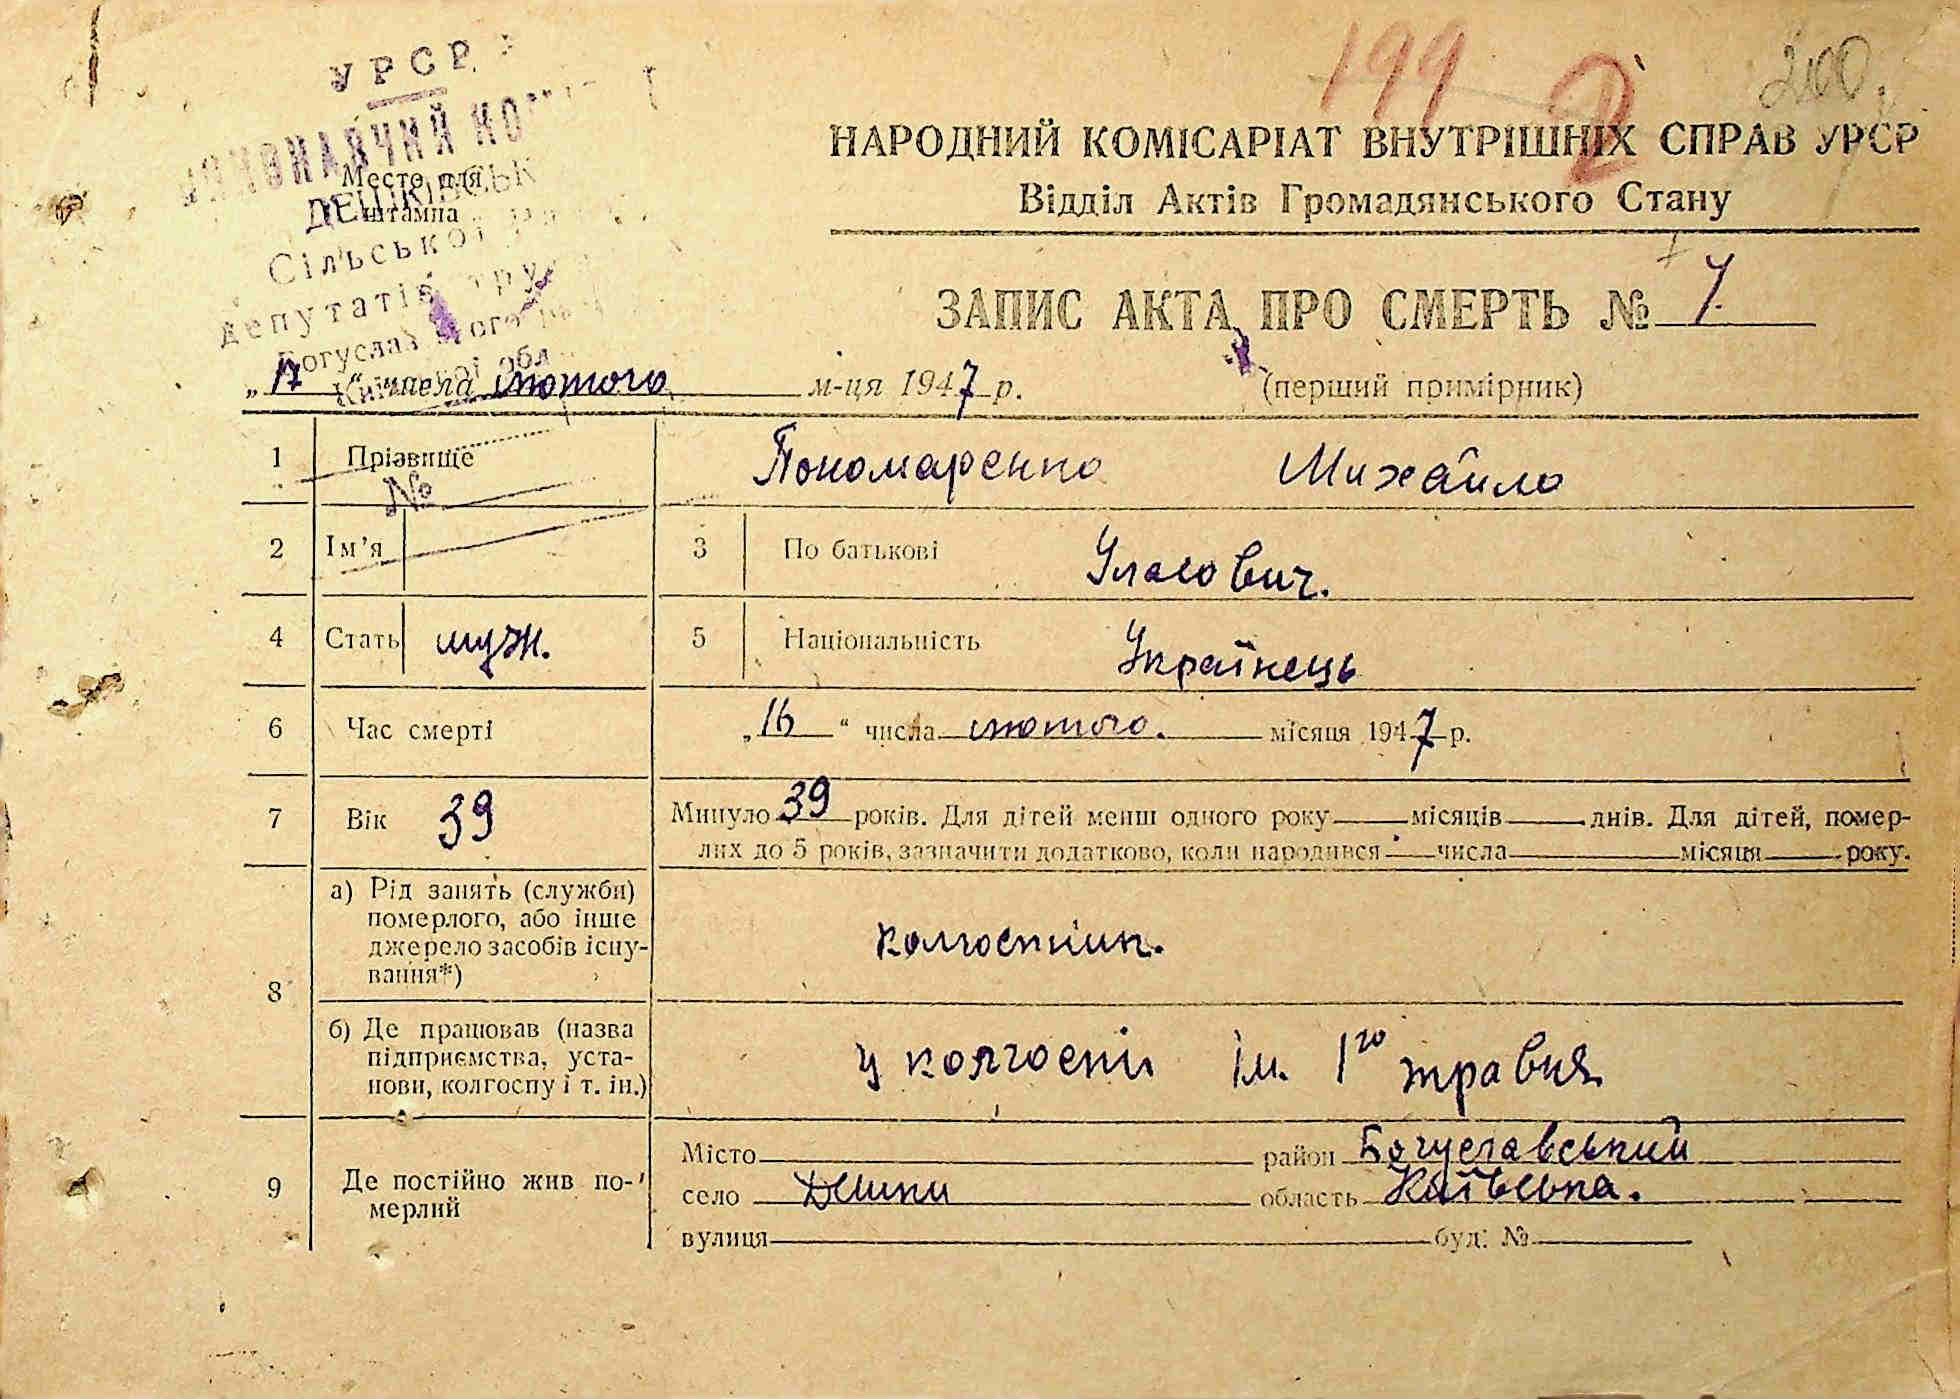 199 2 200
УРСР
ВИКОНАВЧИЙ
Место для
штампа
ДЕШКІВСЬК
Сільської
депутатів
Богуслав ого
Київської обл
НАРОДНИЙ КОМІСАРІАТ ВНУТРІШНІХ СПРАВ УРСР
Відділ Актів Громадянського Стану
ЗАПИС АКТА ПРО СМЕРТЬ № 7.
„17“ числа лютого м-ця 1947 р. (перший примірник)
1 Прізвище Пономаренко Михайло
№
2 Ім'я 3 По батькові Уласович.
4 Стать муж. 5 Національність Українець
6 Час смерті „16“ числа лютого. місяця 1947 р.
7 Вік 39 Минуло 39 років. Для дітей менш одного року місяців днів. Для дітей, помер-
лих до 5 років, зазначити додатково, коли народився числа місяця року.
8 а) Рід занять (служби)
померлого, або інше
джерело засобів існу-
вання*)
колгоспник.
б) Де працював (назва
підприємства, уста-
нови, колгоспу і т. ін.)
у колгоспі ім. 1го травня
9 Де постійно жив по-
мерлий
Місто район Богуславський
село Дешки область Київська.
вулиця буд. №